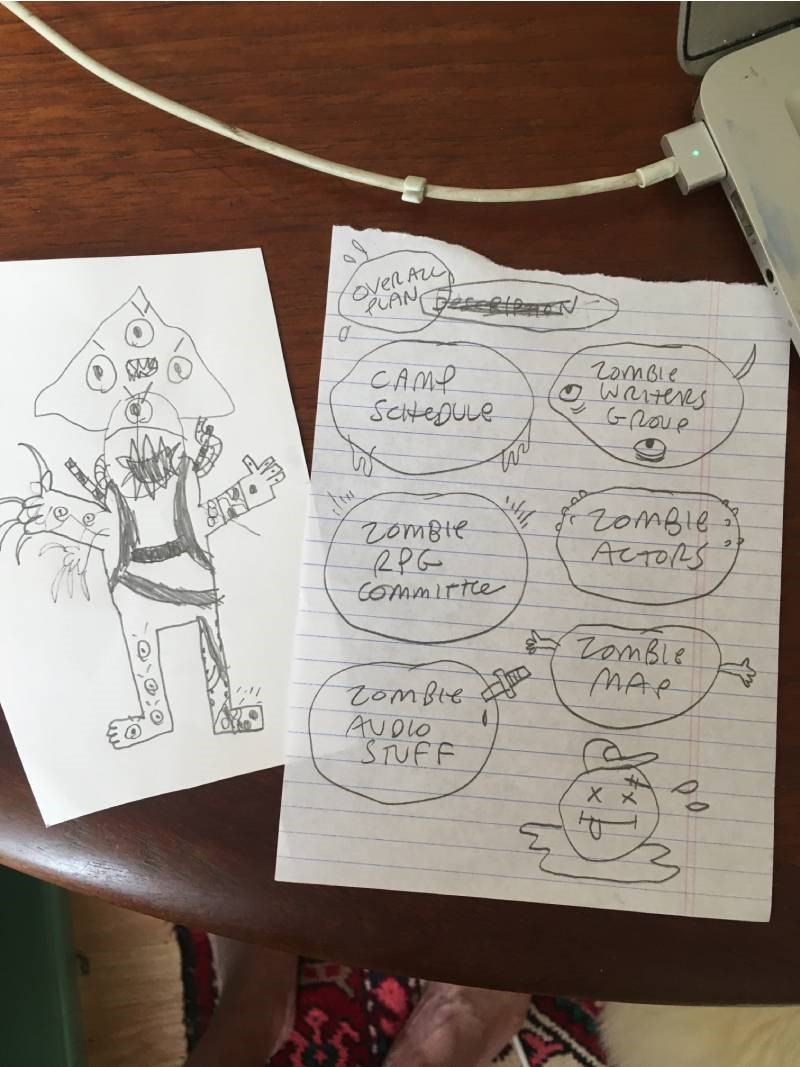 OVERALL
PLAN
DESCRIPTION
CAMP
SCHEDULE
ZOMBIE
WRITERS
GROUP
ZOMBIE
RPG
COMMITTEE
ZOMBIE
ACTORS
ZOMBIE
MAP
ZOMBIE
AUDIO
STUFF